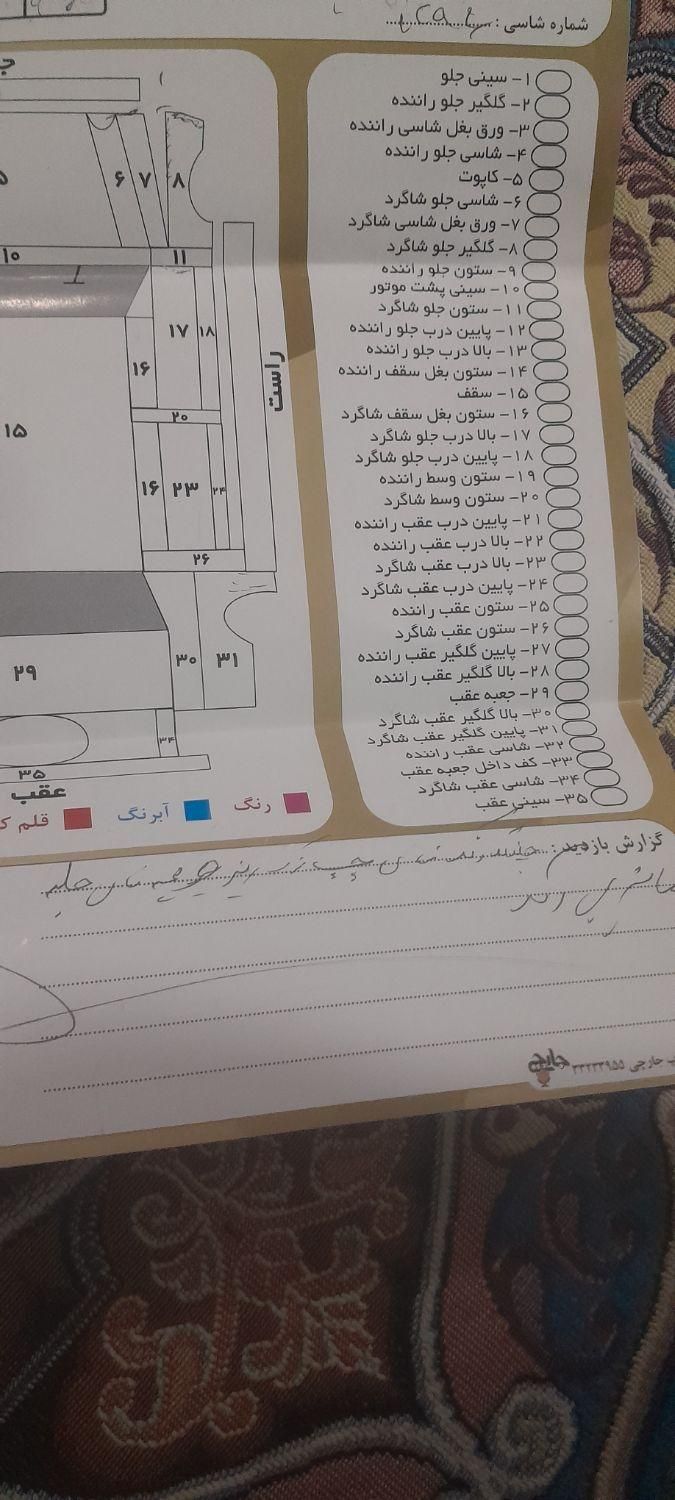 شماره شاسی :
۱- سینی جلو
۲- گلگیر جلو راننده
۳- ورق بغل شاسی راننده
۴- شاسی جلو راننده
۵- کاپوت
۶- شاسی جلو شاگرد
۷- ورق بغل شاسی شاگرد
۸- گلگیر جلو شاگرد
۹- ستون جلو راننده
۱۰- سینی پشت موتور
۱۱- ستون جلو شاگرد
۱۲- پایین درب جلو راننده
۱۳- بالا درب جلو راننده
۱۴- ستون بغل سقف راننده
۱۵- سقف
۱۶- ستون بغل سقف شاگرد
۱۷- بالا درب جلو شاگرد
۱۸- پایین درب جلو شاگرد
۱۹- ستون وسط راننده
۲۰- ستون وسط شاگرد
۲۱- پایین درب عقب راننده
۲۲- بالا درب عقب راننده
۲۳- بالا درب عقب شاگرد
۲۴- پایین درب عقب شاگرد
۲۵- ستون عقب راننده
۲۶- ستون عقب شاگرد
۲۷- پایین گلگیر عقب راننده
۲۸- بالا گلگیر عقب راننده
۲۹- جعبه عقب
۳۰- بالا گلگیر عقب شاگرد
۳۱- پایین گلگیر عقب شاگرد
۳۲- شاسی عقب راننده
۳۳- کف داخل جعبه عقب
۳۴- شاسی عقب شاگرد
۳۵- سینی عقب
۶ ۷ ۸
۱۰ ۱۱
۱۷ ۱۸
۱۶
راست
۲۰
۱۵
۱۶ ۲۳ ۲۴
۲۶
۲۹ ۳۰ ۳۱
۳۴
۳۵
عقب
رنگ آبرنگ قلم
گزارش بازدید :
جارچی ۳۲۲۳۳۹۵۵